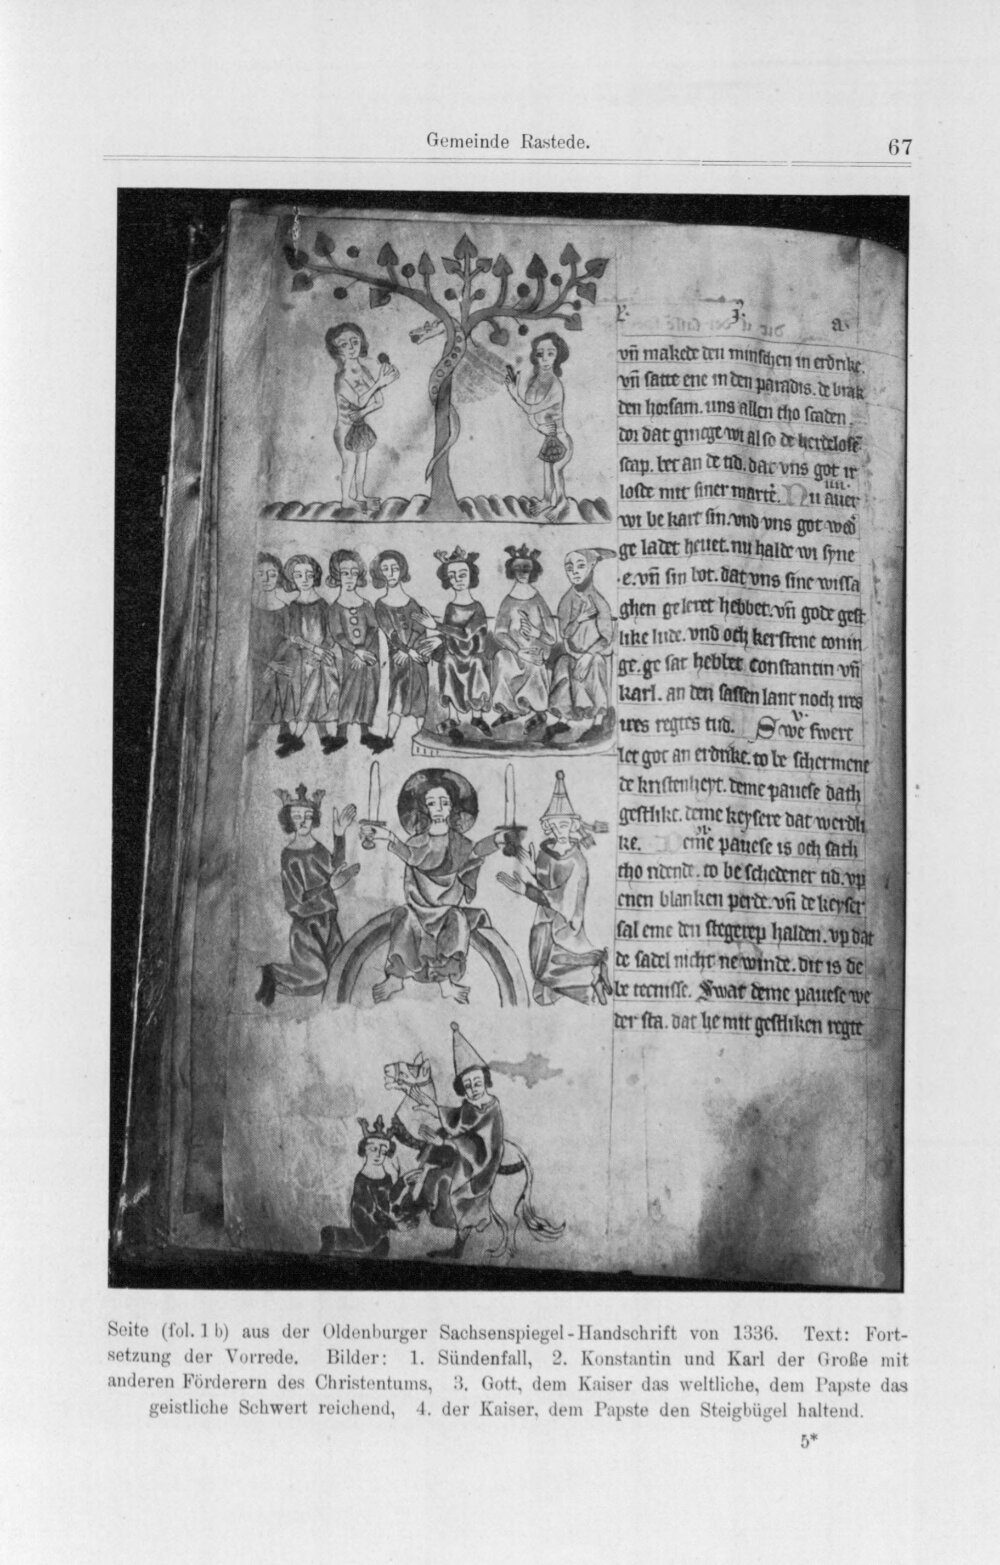 Gemeinde Rastede.
67
a.
vn̄ makede den minschen in erdrike.
vn̄ satte ene in den paradis. de brak
den horsam. uns allen tho scaden.
dor dat ginege wi also de herdelosē
scap. bet an de tid. dat vns got ir
loste mit siner marter. Nu auer
wi be kart sin. vnd vns got wed
ge ladet heuet. nu halde wi syne
e. vn̄ sin bot. dat vns sine wissa
ghen geleret hebbet. vn̄ gode gest
like lude. vnd och kerstene conin
ge. ge sat hebbet constantin vn̄
karl. an den sassen lant noch ires
ires regtes tud. Swe swert
let got an erdrike. to be schermene
de kristenheyt. deme pauese dath
gestlike. deme keysere dat werdli
ke. Deme pauese is och sath
tho ridende. to be schedener tid. vp
enen blanken perde. vn̄ de keyser
sal eme den stegerep halden. vp dat
de sadel nicht ne winde. dit is de
be tecnisse. Swat deme pauese we
der sta. dat he mit gestliken regte
Seite (fol. 1 b) aus der Oldenburger Sachsenspiegel-Handschrift von 1336. Text: Fort-
setzung der Vorrede. Bilder: 1. Sündenfall, 2. Konstantin und Karl der Große mit
anderen Förderern des Christentums, 3. Gott, dem Kaiser das weltliche, dem Papste das
geistliche Schwert reichend, 4. der Kaiser, dem Papste den Steigbügel haltend.
5*